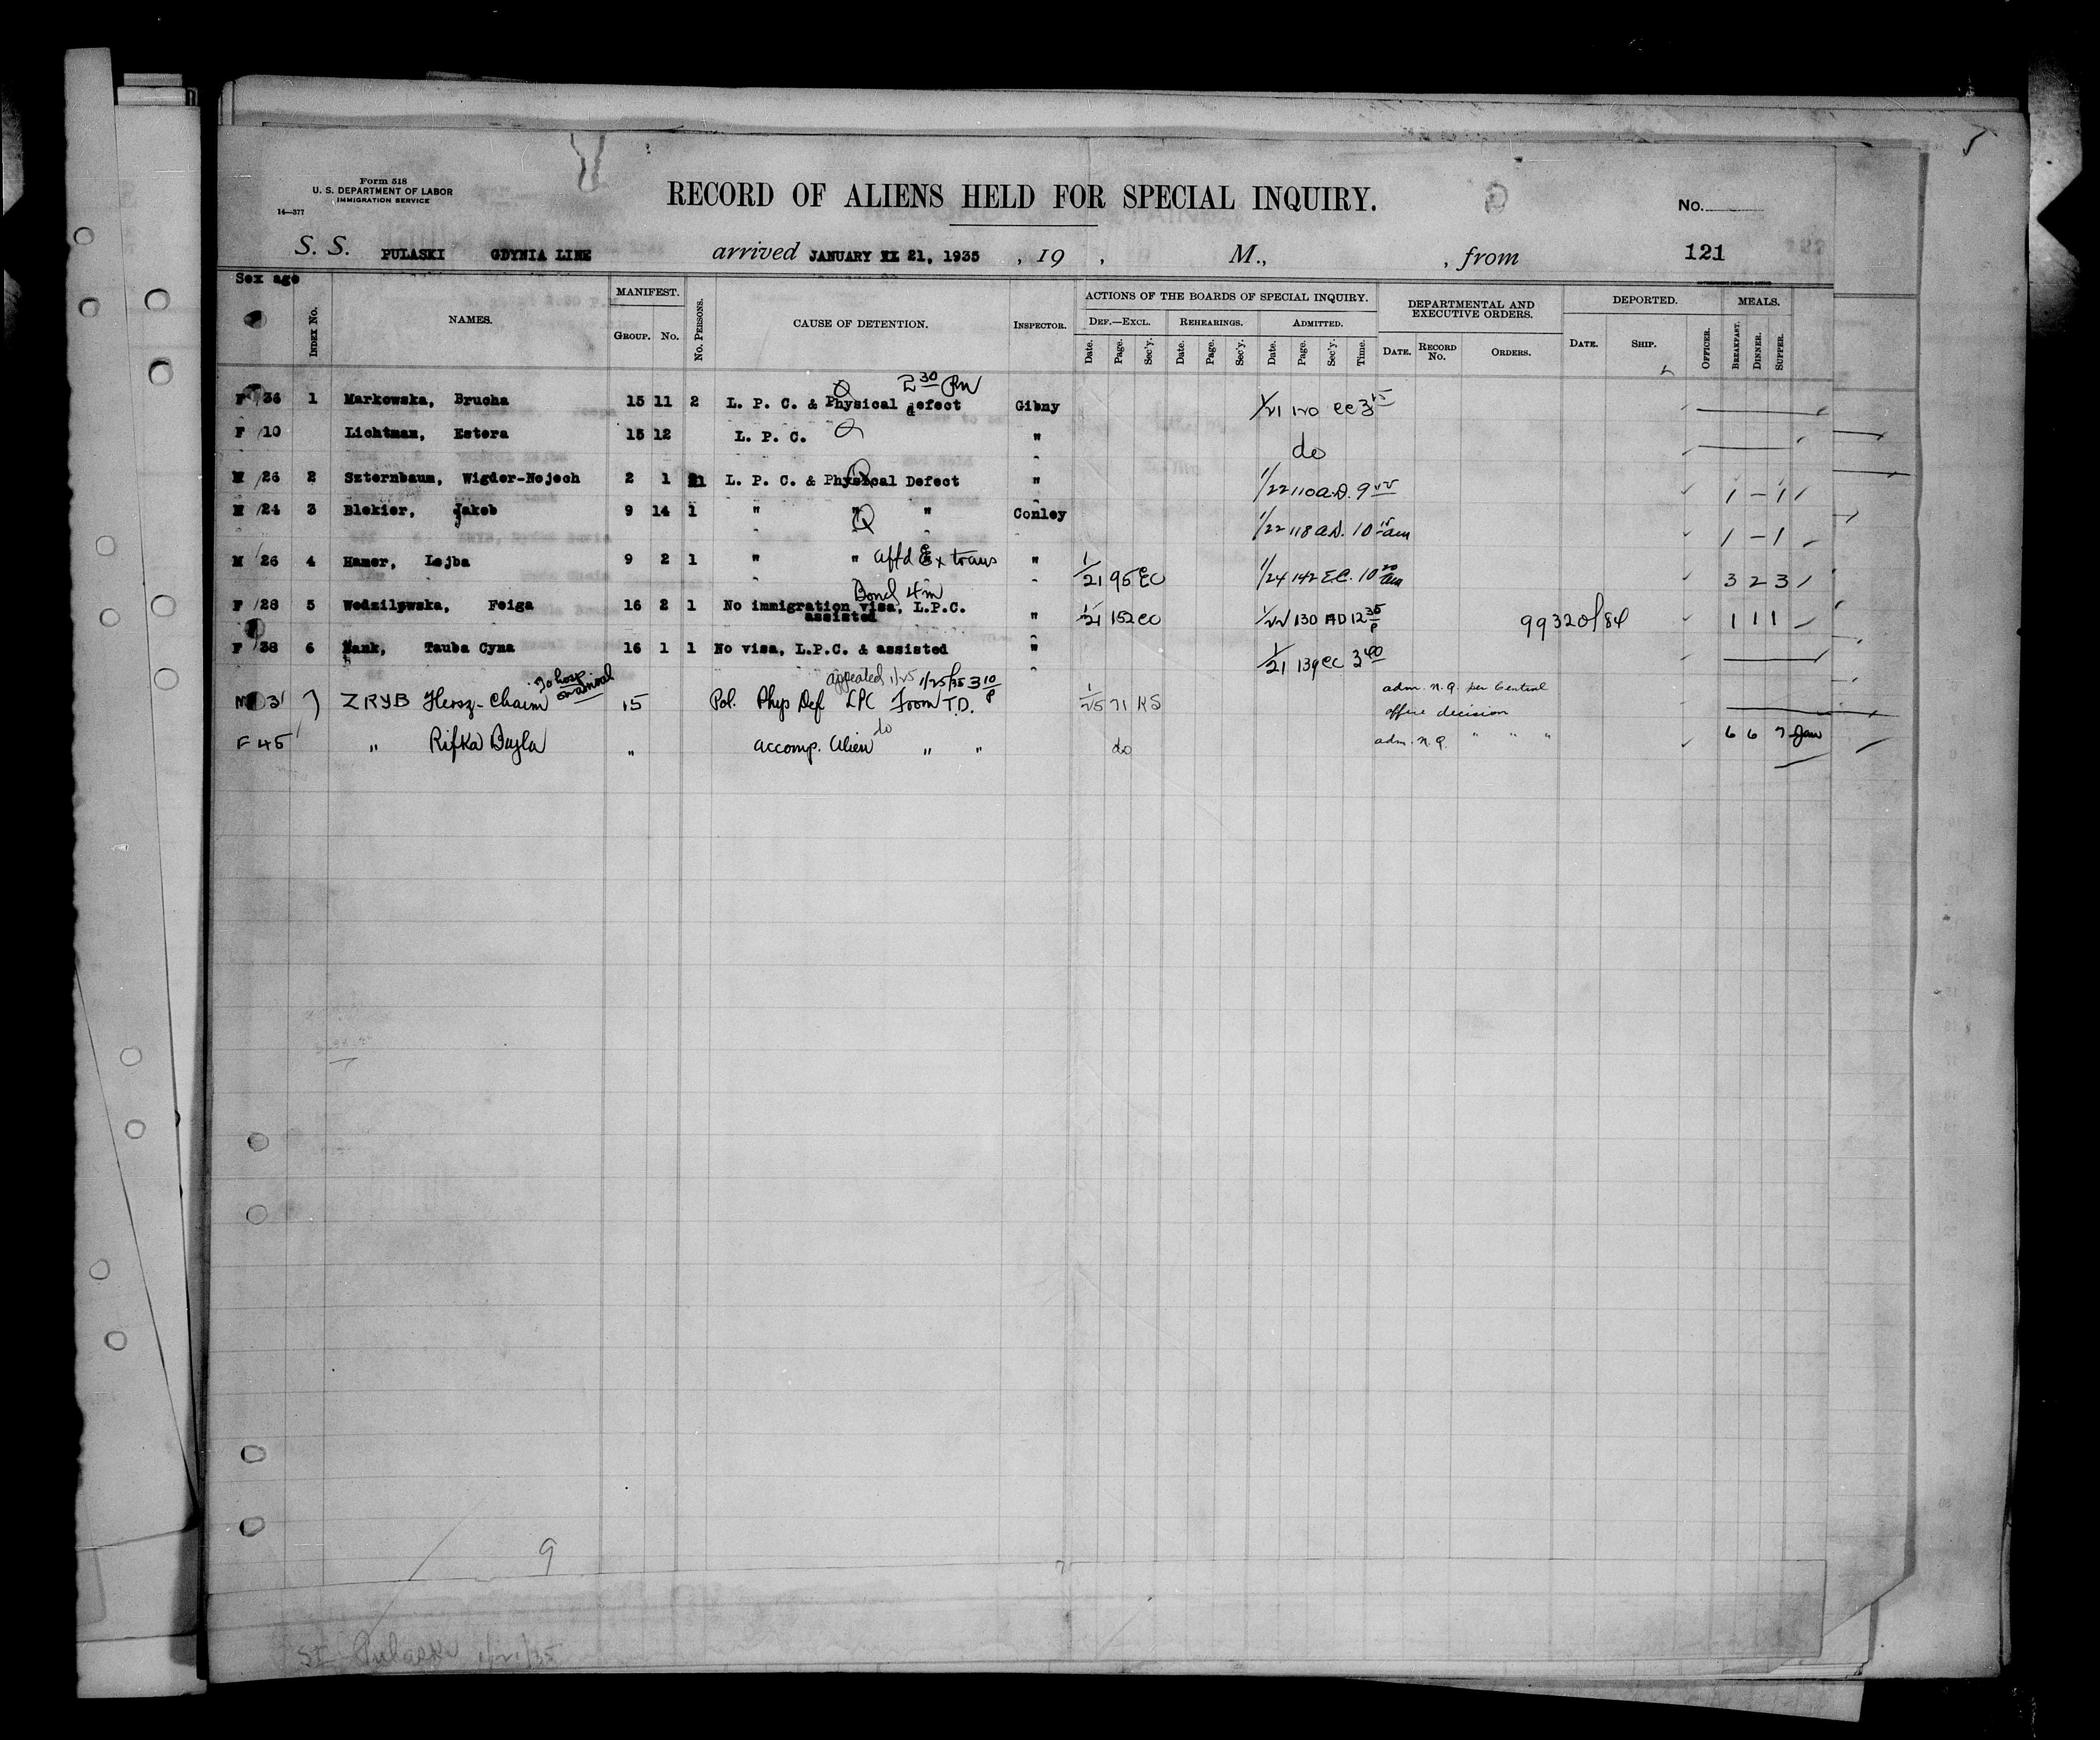 Form 518
U. S. DEPARTMENT OF LABOR
IMMIGRATION SERVICE
14—377
RECORD OF ALIENS HELD FOR SPECIAL INQUIRY.
No.
S. S. PULASKI GDYNIA LINE arrived JANUARY 21, 1935 , 19 , M., , from 121
Sex age
INDEX No.
NAMES.
MANIFEST.
GROUP. No.
No. PERSONS.
CAUSE OF DETENTION.
INSPECTOR.
ACTIONS OF THE BOARDS OF SPECIAL INQUIRY.
DEF.—EXCL. REHEARINGS. ADMITTED.
Date. Page. Sec'y. Date. Page. Sec'y. Date. Page. Sec'y. Time.
DEPARTMENTAL AND EXECUTIVE ORDERS.
DATE. RECORD No. ORDERS.
DEPORTED.
DATE. SHIP. OFFICER.
MEALS.
BREAKFAST. DINNER. SUPPER.
2 30 PM
F 36 1 Markowska, Brucha 15 11 2 L. P. C. & Physical defect Gibny 1/21 120 EC 3 15
F 10 Lichtman, Estera 15 12 L. P. C. " do
M 26 2 Szternbaum, Wigder-Nojech 2 1 1 L. P. C. & Physical Defect " 1/22 110 A.D. 9 1 - 1
M 24 3 Blekier, Jakob 9 14 1 " " " Conley 1/22 118 A.D. 10 15 am 1 - 1
M 26 4 Hamer, Lejba 9 2 1 " " affd & Ex trans " 1/21 95 EC 1/24 142 E.C. 10 20 am 3 2 3
Bond 4m
F 28 5 Wodzilowska, Feiga 16 2 1 No immigration visa, L.P.C. assisted " 1/21 152 EC 1/22 130 AD 12 35 P 99320/84 1 1 1
F 38 6 Bank, Tauba Cyna 16 1 1 No visa, L.P.C. & assisted " 1/21 139 EC 3 40
To hosp on arrival
appealed 1/25 1/25/35 3 10 P
M 31 7 ZRYB Hersz-Chaim 15 Pol. Phys Def LPC From T.D. 1/25 71 KS adm. N.Q. per Central office decision
F 45 " Rifka Bayla " accomp. Alien do " " do adm. N.Q. " " " 6 6 7 Jan
9
SI Pulaski 1/21/35